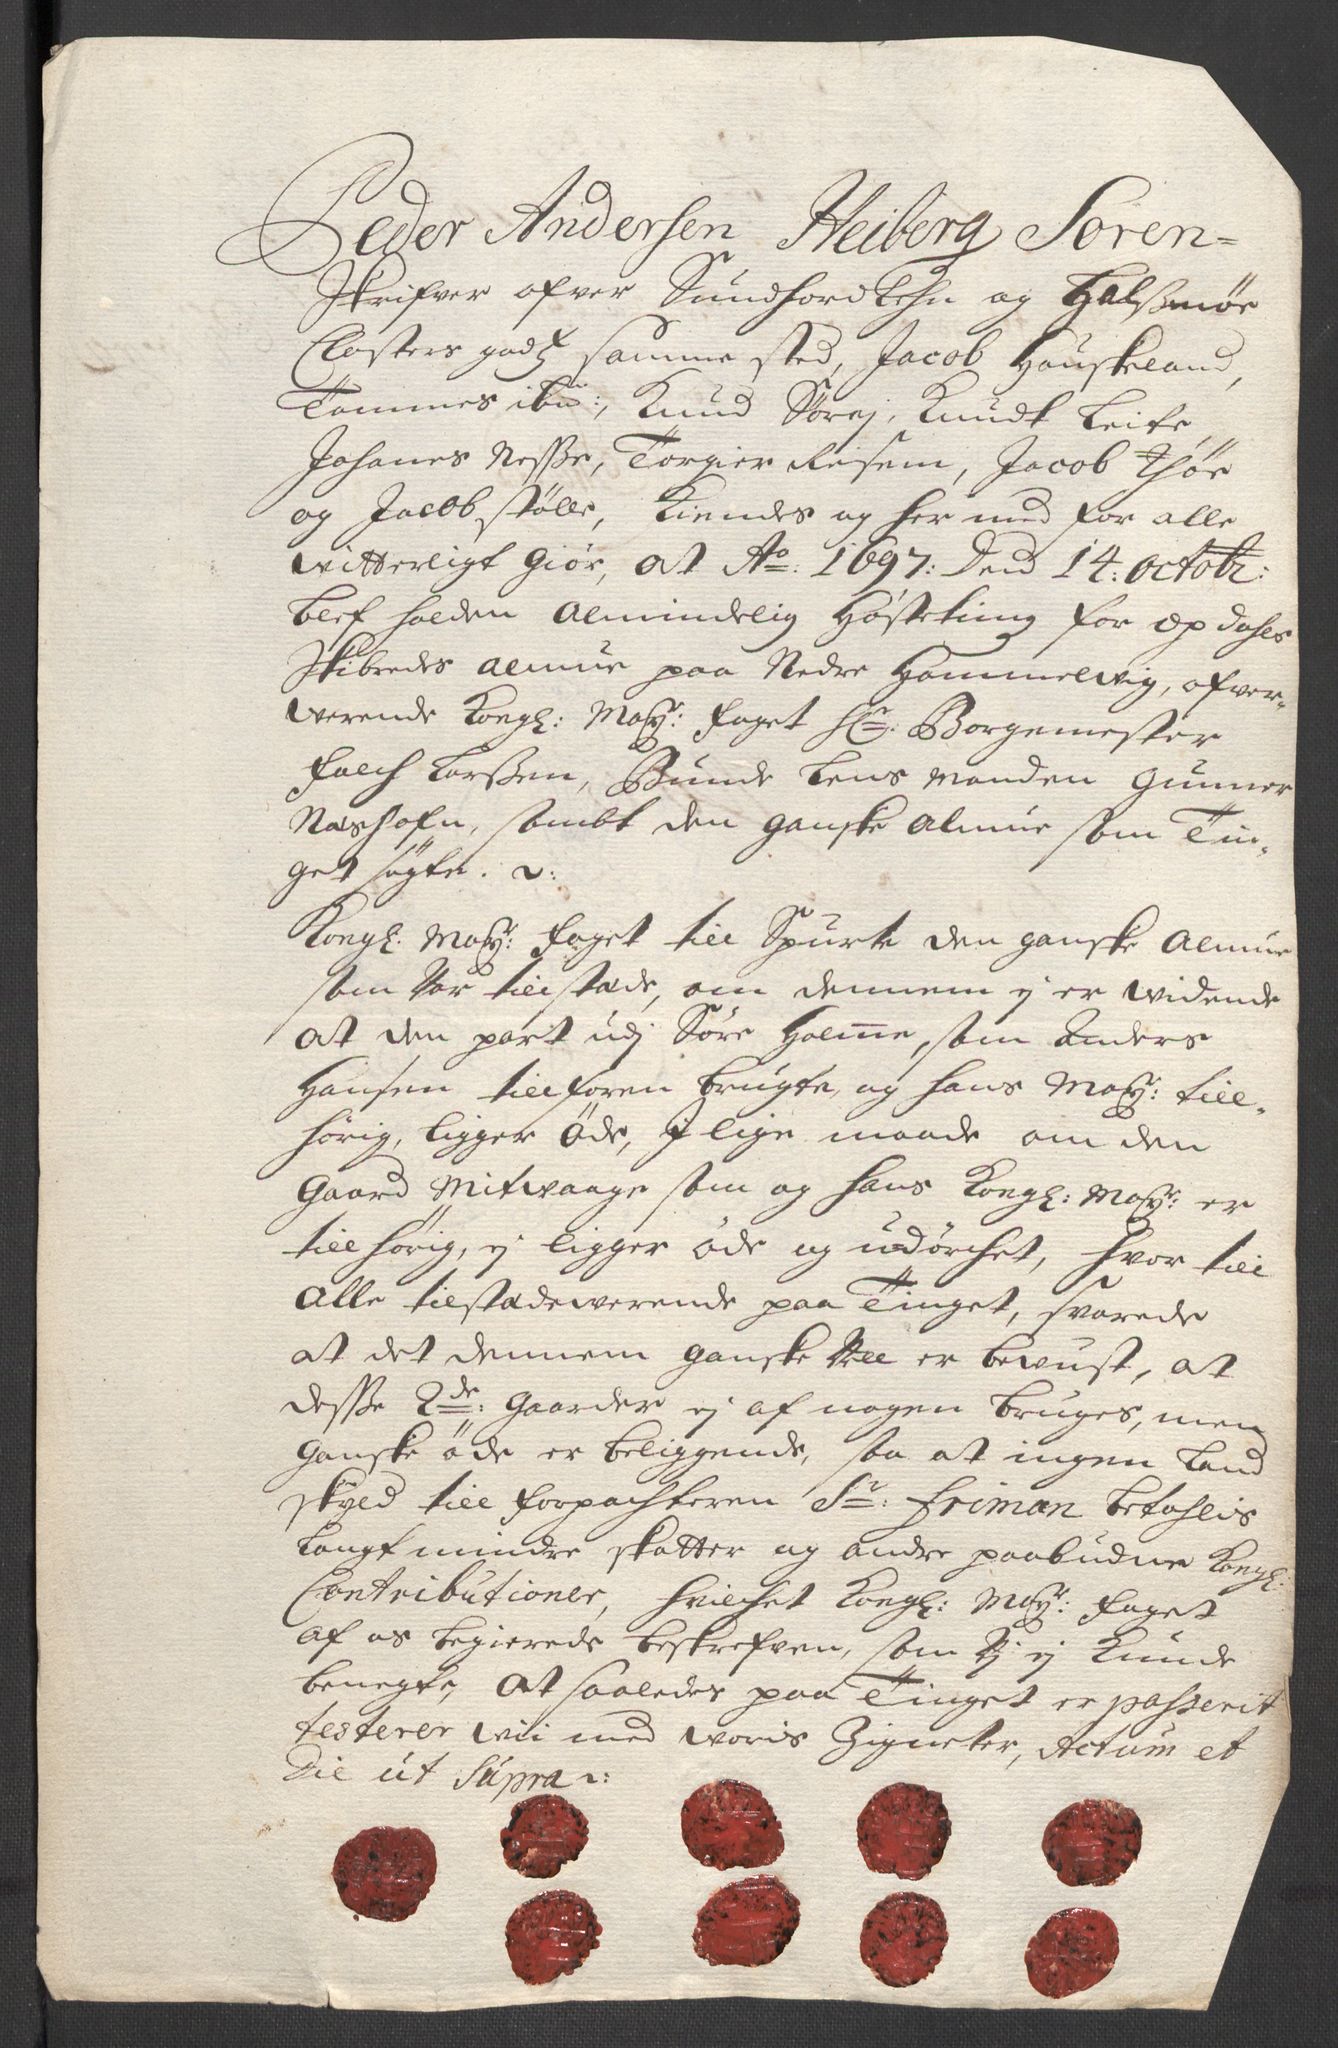 Peder Andersen Heiberg Soren-
Skrifver ofver Sundhordlehn og Halsnøe
Closters godtz samme sted, Jacob Houskeland,
Tommes ibm:, Knud Sørej, Knudt Leite,
Johanes Nesse, Torgier Reisem, Jacob Thøe
og Jacob Støle, Kiendes og her med for alle
witterligt Giør, at Ao: 1697: Dend 14: octobr:
blef holden Almindelig Høsteting for Opdahls
Skibredes Almue paa Nedre Hammelwig, ofver-
werende Kongl: Mayts: Foget Hr: Borgemester
Falch Larssen, Bunde Lens Manden Gunner
Næshafn, sambt den ganske Almue som Tin-
get søgte. ::
Kongl: Mayts: Foget till Spurte den ganske Almue
som var tillstæde, om dennem ej er widende
at den part udj Søre Holme, som Anders
Hansen tillforen brugte, og hans Mayts: till-
hørig, ligger Øde, J lige maade om den
Gaard Mitwaage som og hans Kongl: Mayts: er
till hørig, ej ligger øde og udørchet, hvor till
Alle tilstædewerende paa Tinget, svarede
at det dennem ganske Vell er bewust, at
desse 2de: Gaarder ej af nogen bruges, men
Ganske øde er beliggende, saa at ingen Land
skyld till Forpachteren Sr: Friman betahlis
langt mindre skatter og andre paabudne Kongl:
Contributioner, hvilchet Kongl: Mayts: Foget
af os begierede beskrefven, som Vj ej Kunde
benegte, At saaledes paa Tinget er passerit
testerer wii med woris Zigneter, Actum et
Die ut Supra ::